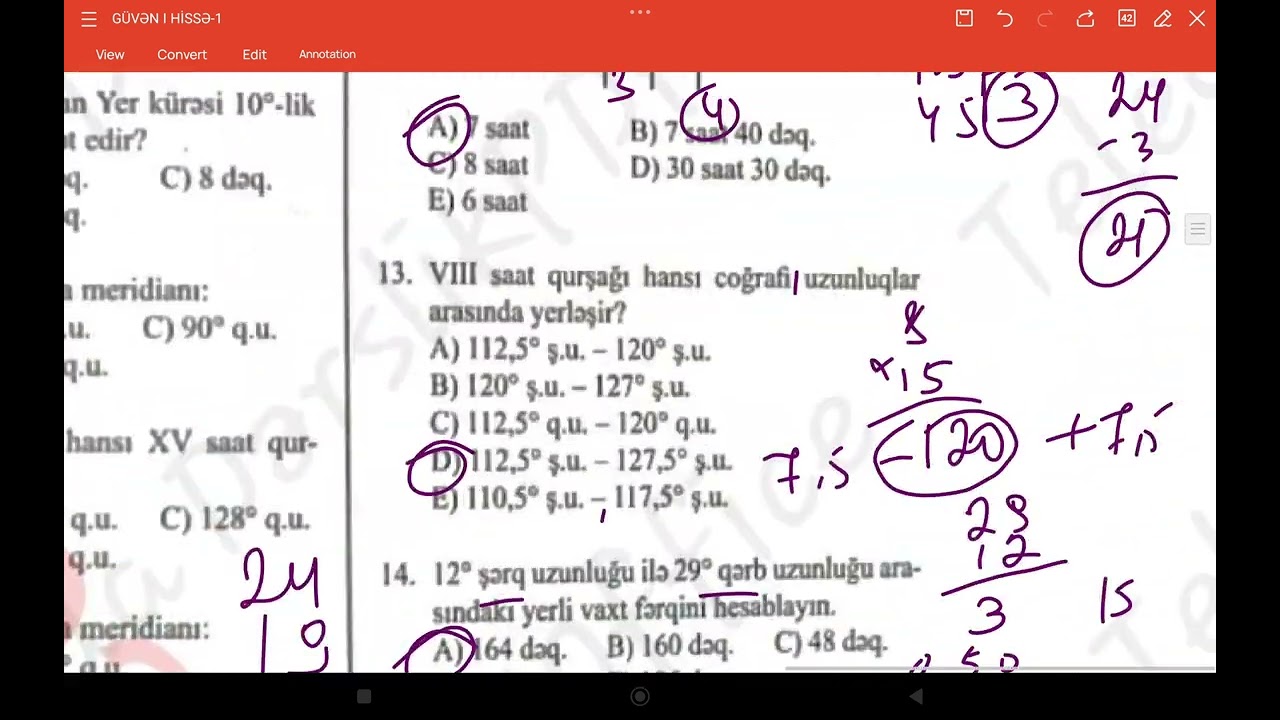 GÜVƏN I HİSSƏ-1
42
View Convert Edit Annotation
ın Yer kürəsi 10°-lik
ıt edir?
q. C) 8 dəq.
q.
ı meridianı:
.u. C) 90° q.u.
q.u.
hansı XV saat qur-
q.u. C) 128° q.u.
q.u.
ı meridianı:
° q.u.
24
19
3
4
A) 7 saat B) 7 saat 40 dəq.
C) 8 saat D) 30 saat 30 dəq.
E) 6 saat
45 3
24
-3
21
13. VIII saat qurşağı hansı coğrafi uzunluqlar
arasında yerləşir?
A) 112,5° ş.u. – 120° ş.u.
B) 120° ş.u. – 127° ş.u.
C) 112,5° q.u. – 120° q.u.
D) 112,5° ş.u. – 127,5° ş.u.
E) 110,5° ş.u. – 117,5° ş.u.
8
×15
7,5 –120 +7,5
14. 12° şərq uzunluğu ilə 29° qərb uzunluğu ara-
sındakı yerli vaxt fərqini hesablayın.
A) 164 dəq. B) 160 dəq. C) 48 dəq.
29
12
3 15